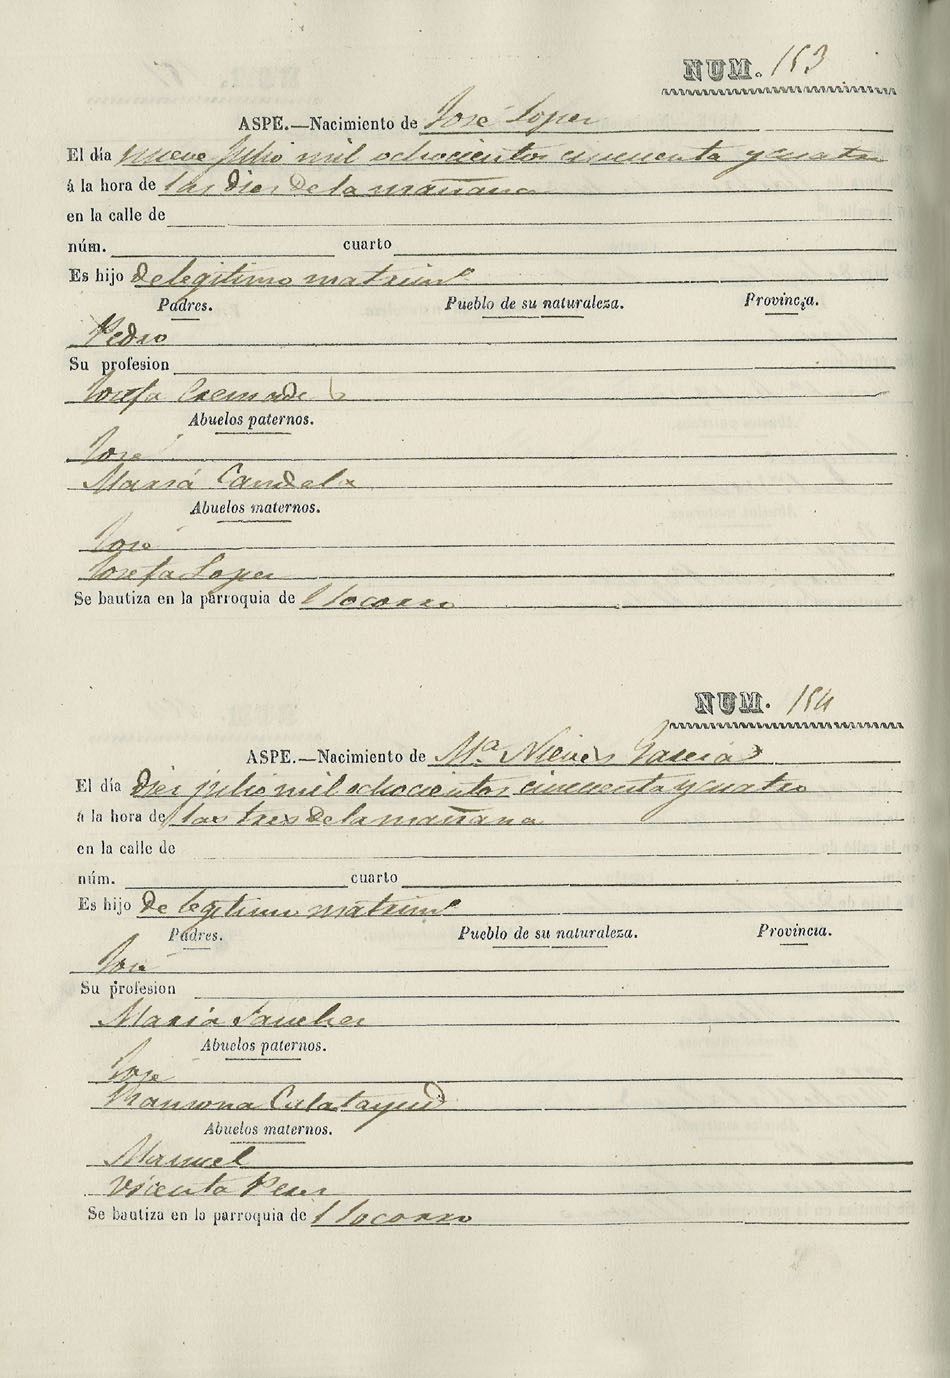 NUM. 153
ASPE.—Nacimiento de José Loper
El día nueve julio mil ochocientos cincuenta y cuatro
á la hora de las dies de la mañana
en la calle de
núm. cuarto
Es hijo de legitimo matrimo
Padres. Pueblo de su naturaleza. Provincia.
Pedro
Su profesion
Josefa Cremade
Abuelos paternos.
José
María Candela
Abuelos maternos.
José
Josefa Loper
Se bautiza en la parroquia de l Socorro
NUM. 154
ASPE.—Nacimiento de Mª Nieves Garcia
El día dies julio mil ochocientos cincuenta y cuatro
á la hora de las tres de la mañana
en la calle de
núm. cuarto
Es hijo de legitimo matrimo
Padres. Pueblo de su naturaleza. Provincia.
José
Su profesion
Maria Sancher
Abuelos paternos.
José
Ramona Calatayud
Abuelos maternos.
Manuel
Vicenta Perer
Se bautiza en la parroquia de l Socorro